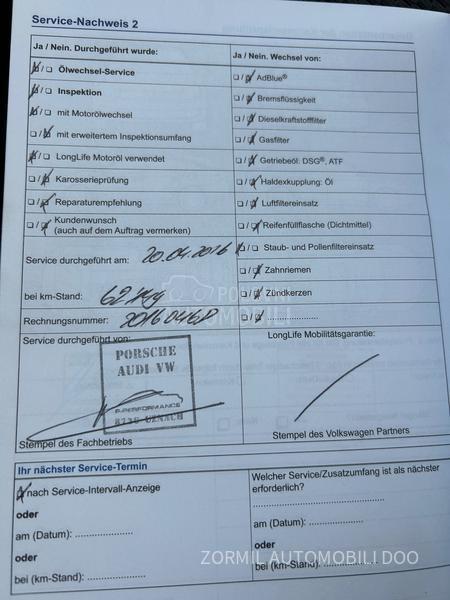 Service-Nachweis 2
Ja / Nein. Durchgeführt wurde:
Ölwechsel-Service
Inspektion
mit Motorölwechsel
mit erweitertem Inspektionsumfang
LongLife Motoröl verwendet
Karosserieprüfung
Reparaturempfehlung
Kundenwunsch
(auch auf dem Auftrag vermerken)
Service durchgeführt am: 20.04.2016
bei km-Stand:
Rechnungsnummer:
Service durchgeführt von:
PORSCHE
AUDI VW
PERFORMANCE
UZNACH
Stempel des Fachbetriebs
Ja / Nein. Wechsel von:
AdBlue®
Bremsflüssigkeit
Dieselkraftstofffilter
Gasfilter
Getriebeöl: DSG®, ATF
Haldexkupplung: Öl
Luftfiltereinsatz
Reifenfüllflasche (Dichtmittel)
Staub- und Pollenfiltereinsatz
Zahnriemen
Zündkerzen
LongLife Mobilitätsgarantie:
Stempel des Volkswagen Partners
Ihr nächster Service-Termin
nach Service-Intervall-Anzeige
oder
am (Datum): ....................
oder
bei (km-Stand): ....................
Welcher Service/Zusatzumfang ist als nächster
erforderlich?
am (Datum): ....................
oder
bei (km-Stand): ....................
ZORMIL AUTOMOBILI DOO